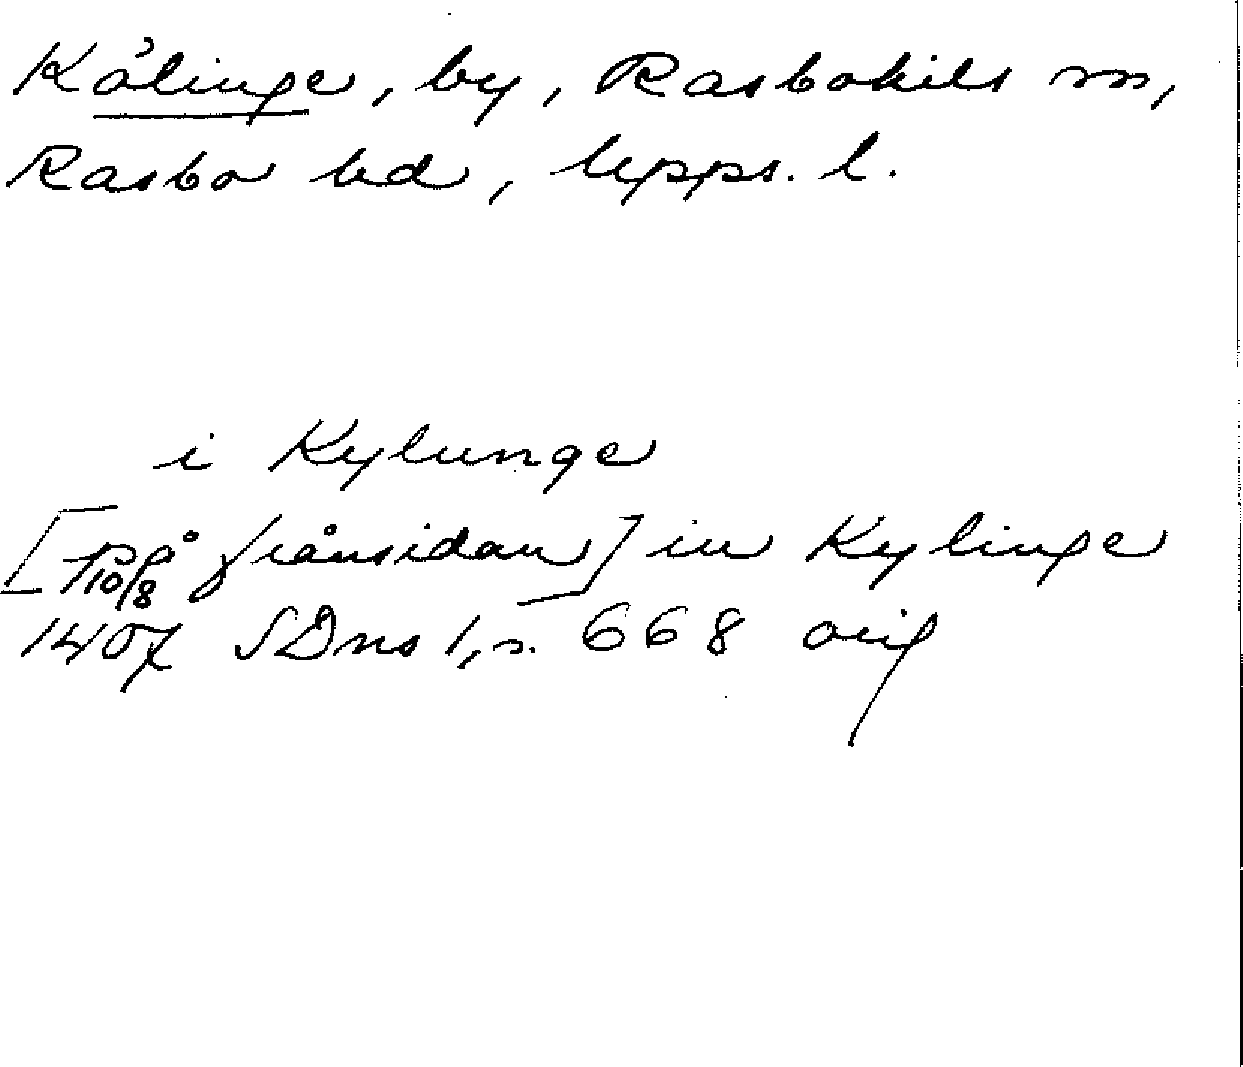 Kålinge, by, Rasbokils sn,
Rasbo hd, Upps. l.
i Kylunge
[På frånsidan] in Kylinge
10/8 1407 SDns 1, s. 668 orig